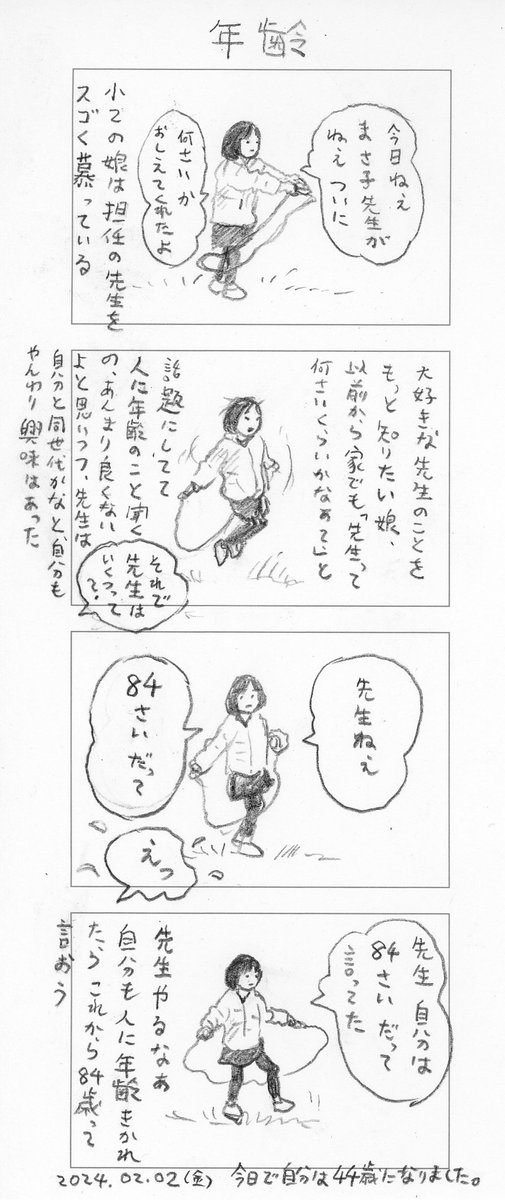 年齢
今日ねえ
まさ子先生が
ねえ ついに
何さいか
おしえてくれたよ
小2の娘は担任の先生を
スゴく慕っている
大好きな先生のことを
もっと知りたい娘、
以前から家でも「先生って
何さいくらいかなあ？」と
話題にしてて
人に年齢のこと聞く
の、あんまり良くない
よと思いつつ、先生は
自分と同世代かなと、自分も
やんわり興味はあった
それで
先生は
いくつって
？
先生ねえ
84
さい だって
えっ
先生 自分は
84さい だって
言ってた
先生やるなあ
自分も人に年齢きかれ
たら これから 84歳って
言おう
2024.02.02(金) 今日で自分は44歳になりました。